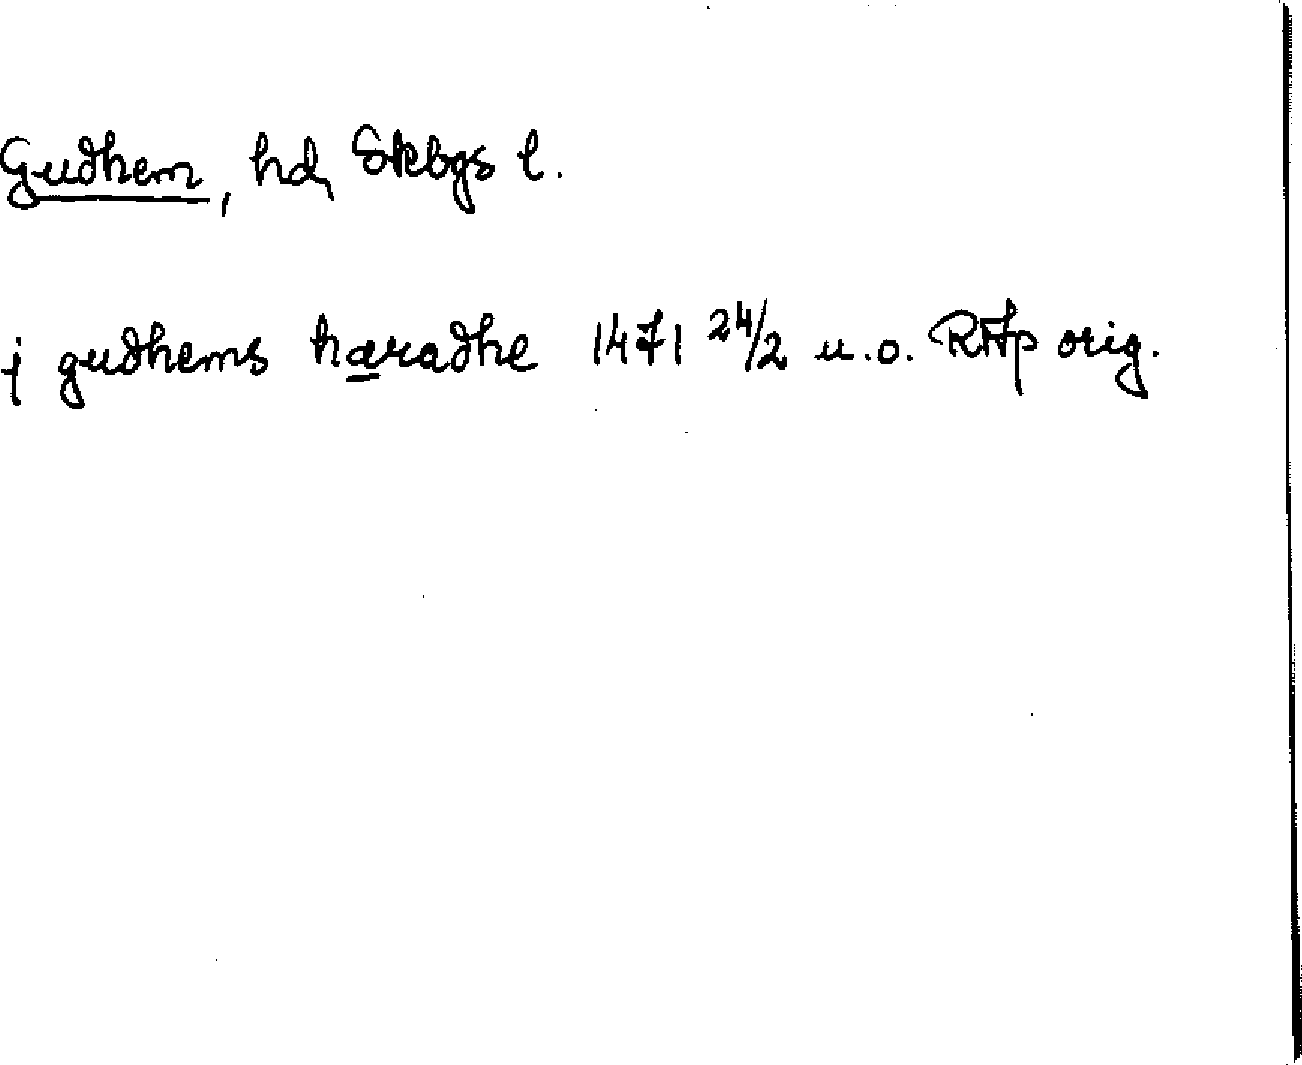 Gudhem, hd, Skbgs l.
j gudhems haradhe 1471 24/2 u.o. RAp orig.